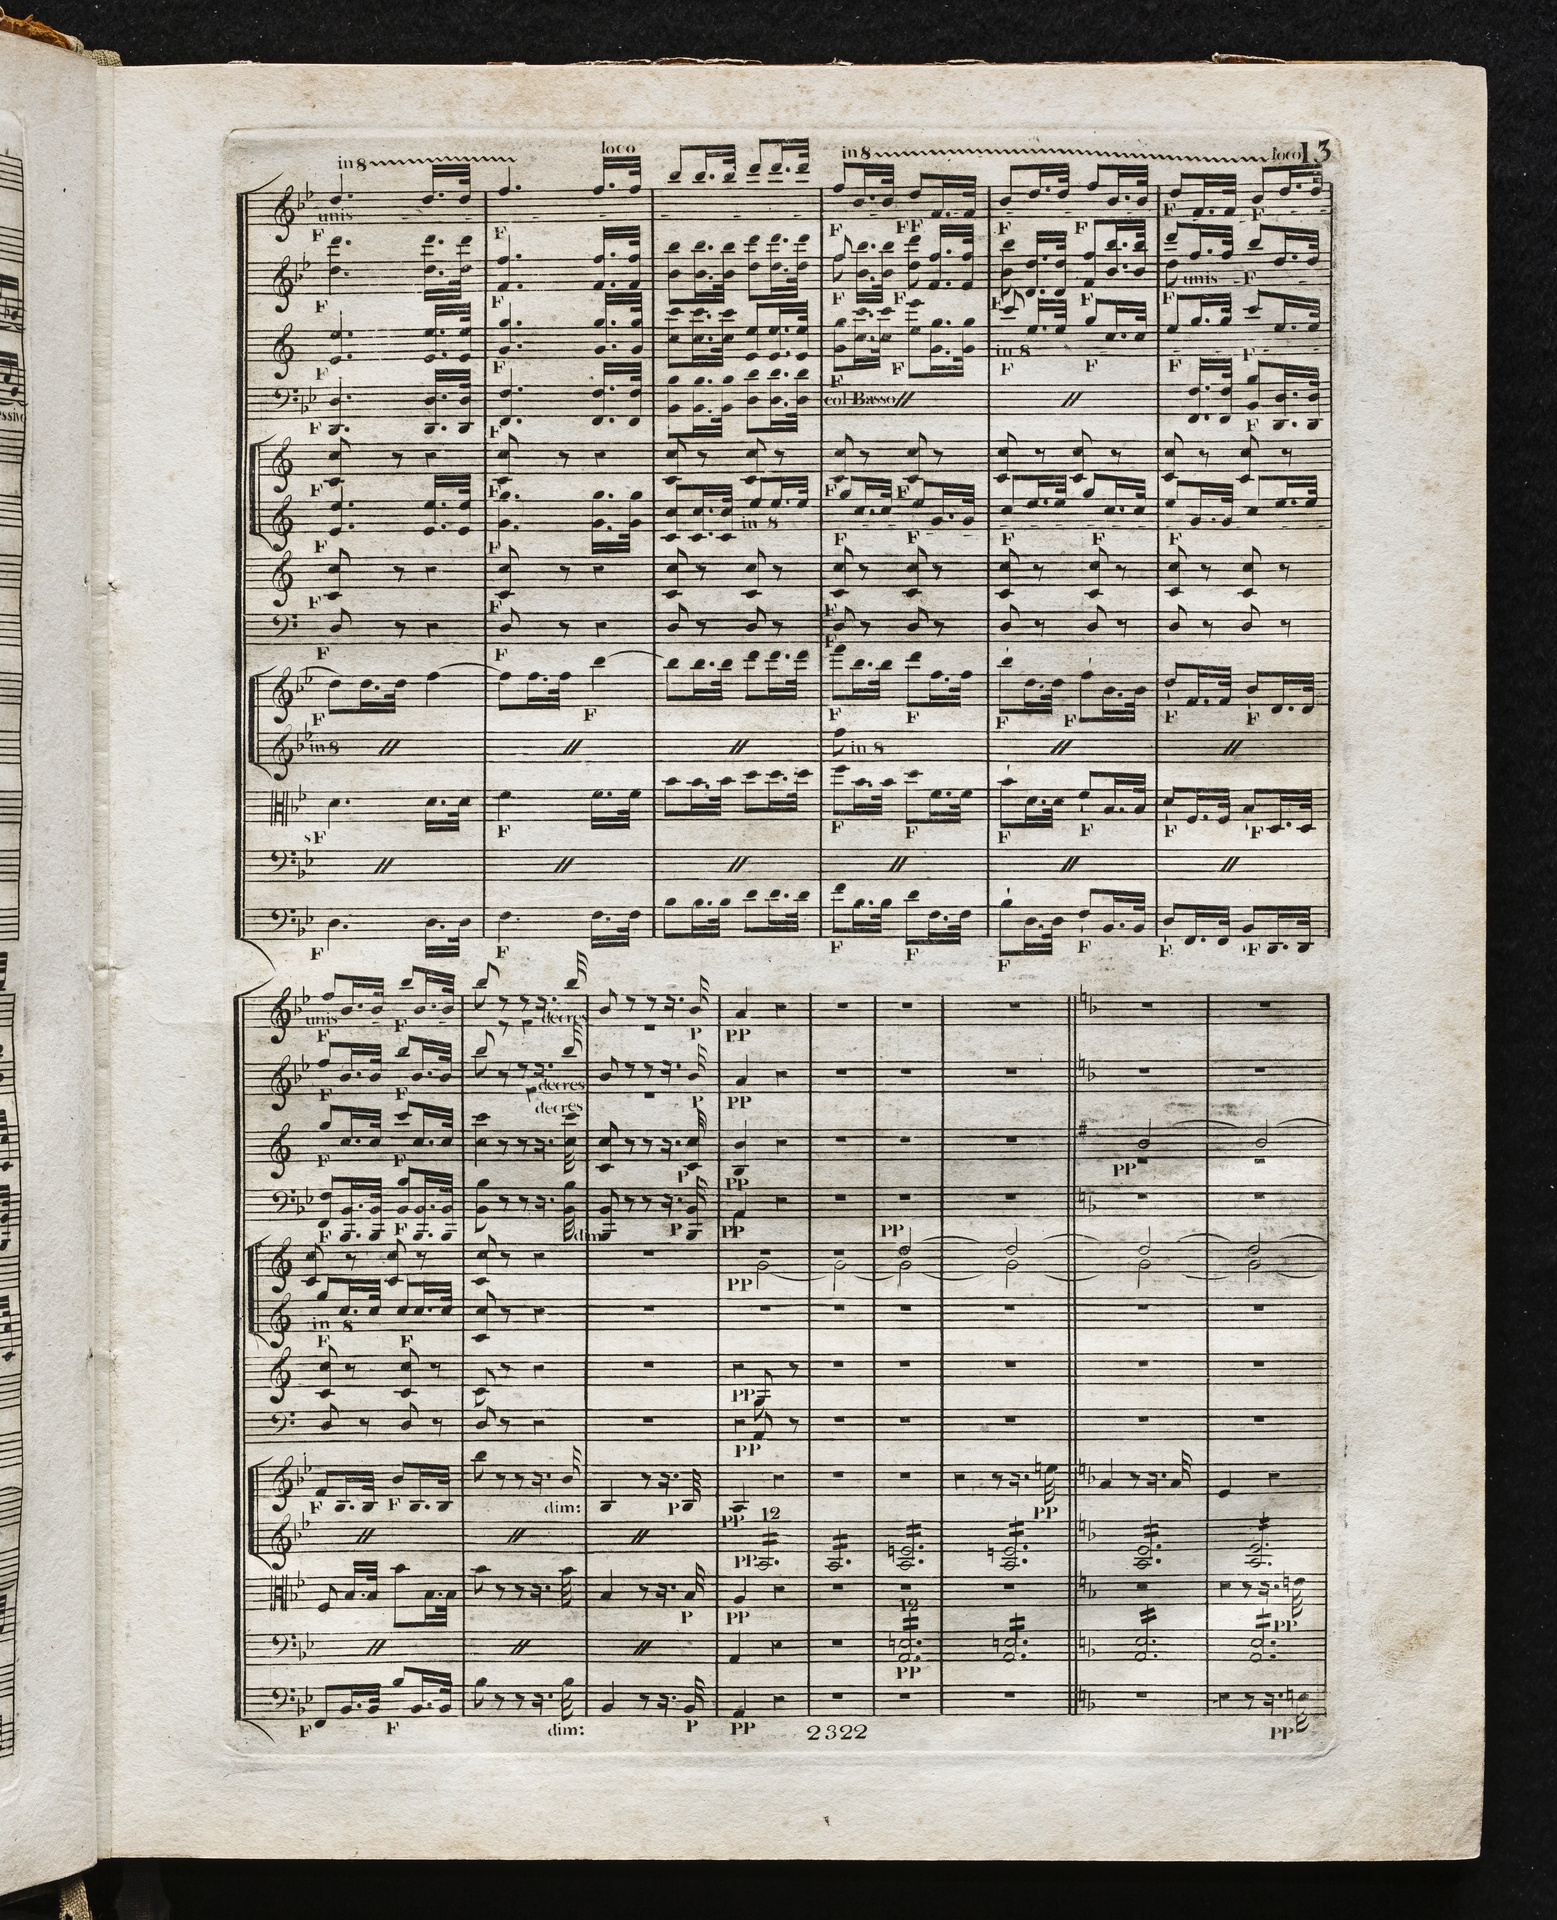 in 8 loco in 8 loco 13
unis
F F F FF F F F F
F F F F F F unis F
F F F F in 8 F F F F
F F col Basso F
F F F F
F F in 8 F F F F F
F F F
F F F
F F F F F F F F
in 8 in 8
sF F F F F F F F
F F F F F F F F
unis F F decres P PP
F F decres P PP
decres
F F P PP PP
F F dim P PP PP
PP
in 8
F F
PP
PP
F F dim: P PP PP
12
PP
P PP 12 PP
PP
F F dim: P PP PP
2322